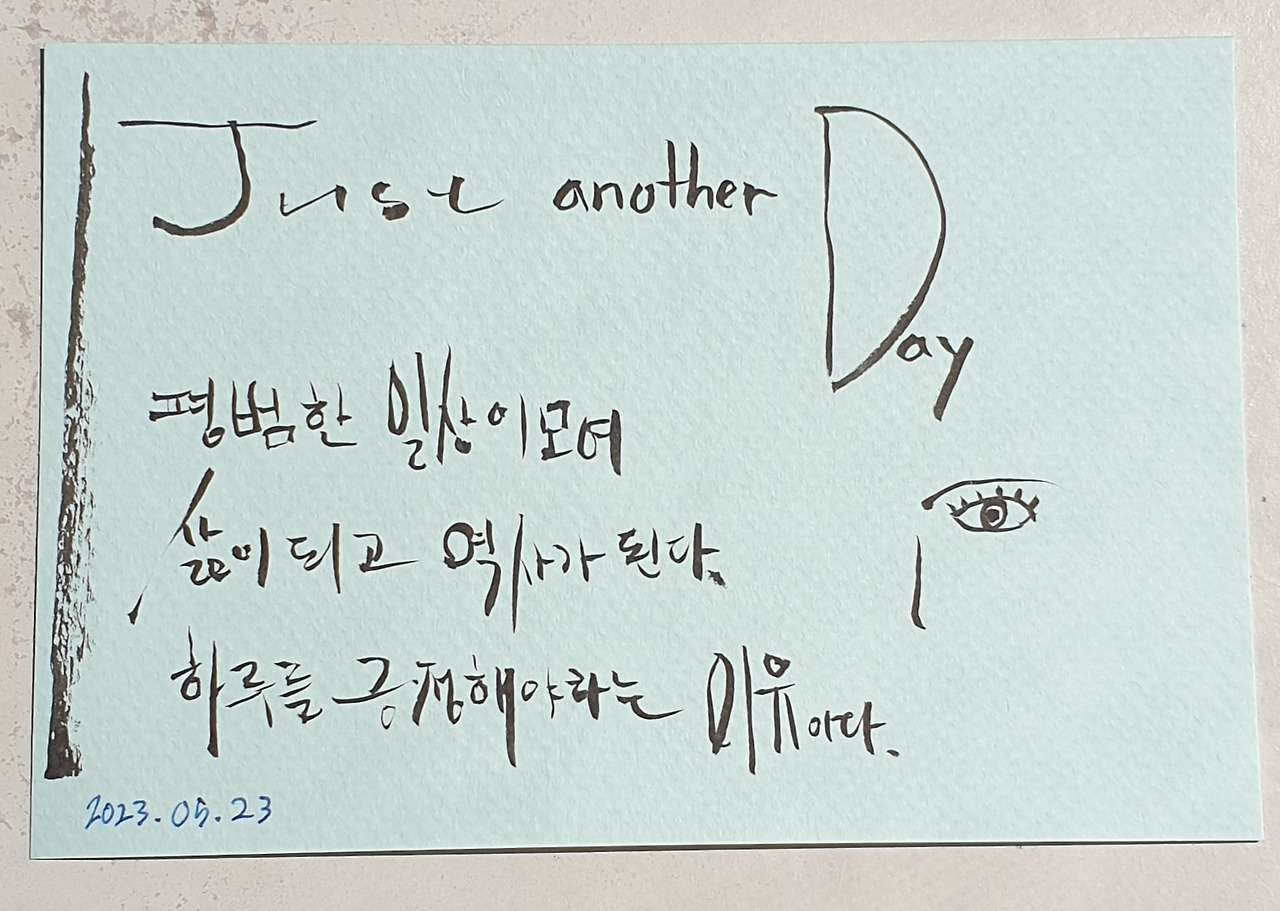 Just another Day
평범한 일상이 모여
삶이 되고 역사가 된다.
하루를 긍정해야하는 이유이다.
2023.05.23